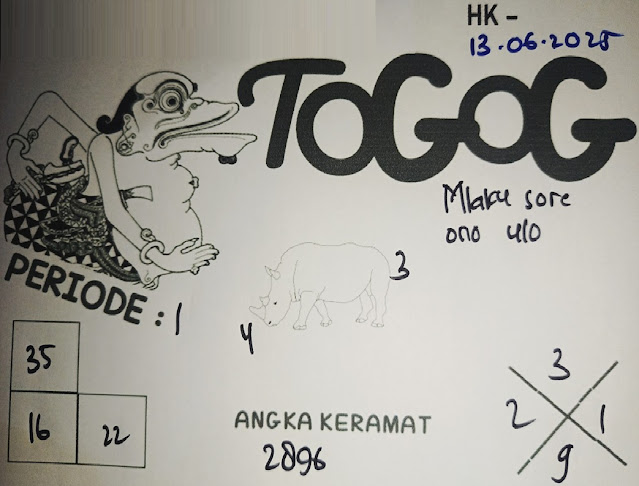 HK –
13.06.2025
TOGOG
Mlaku sore
ono ulo
PERIODE : 1
3
4
35
16 22
ANGKA KERAMAT
2896
3
2 1
9